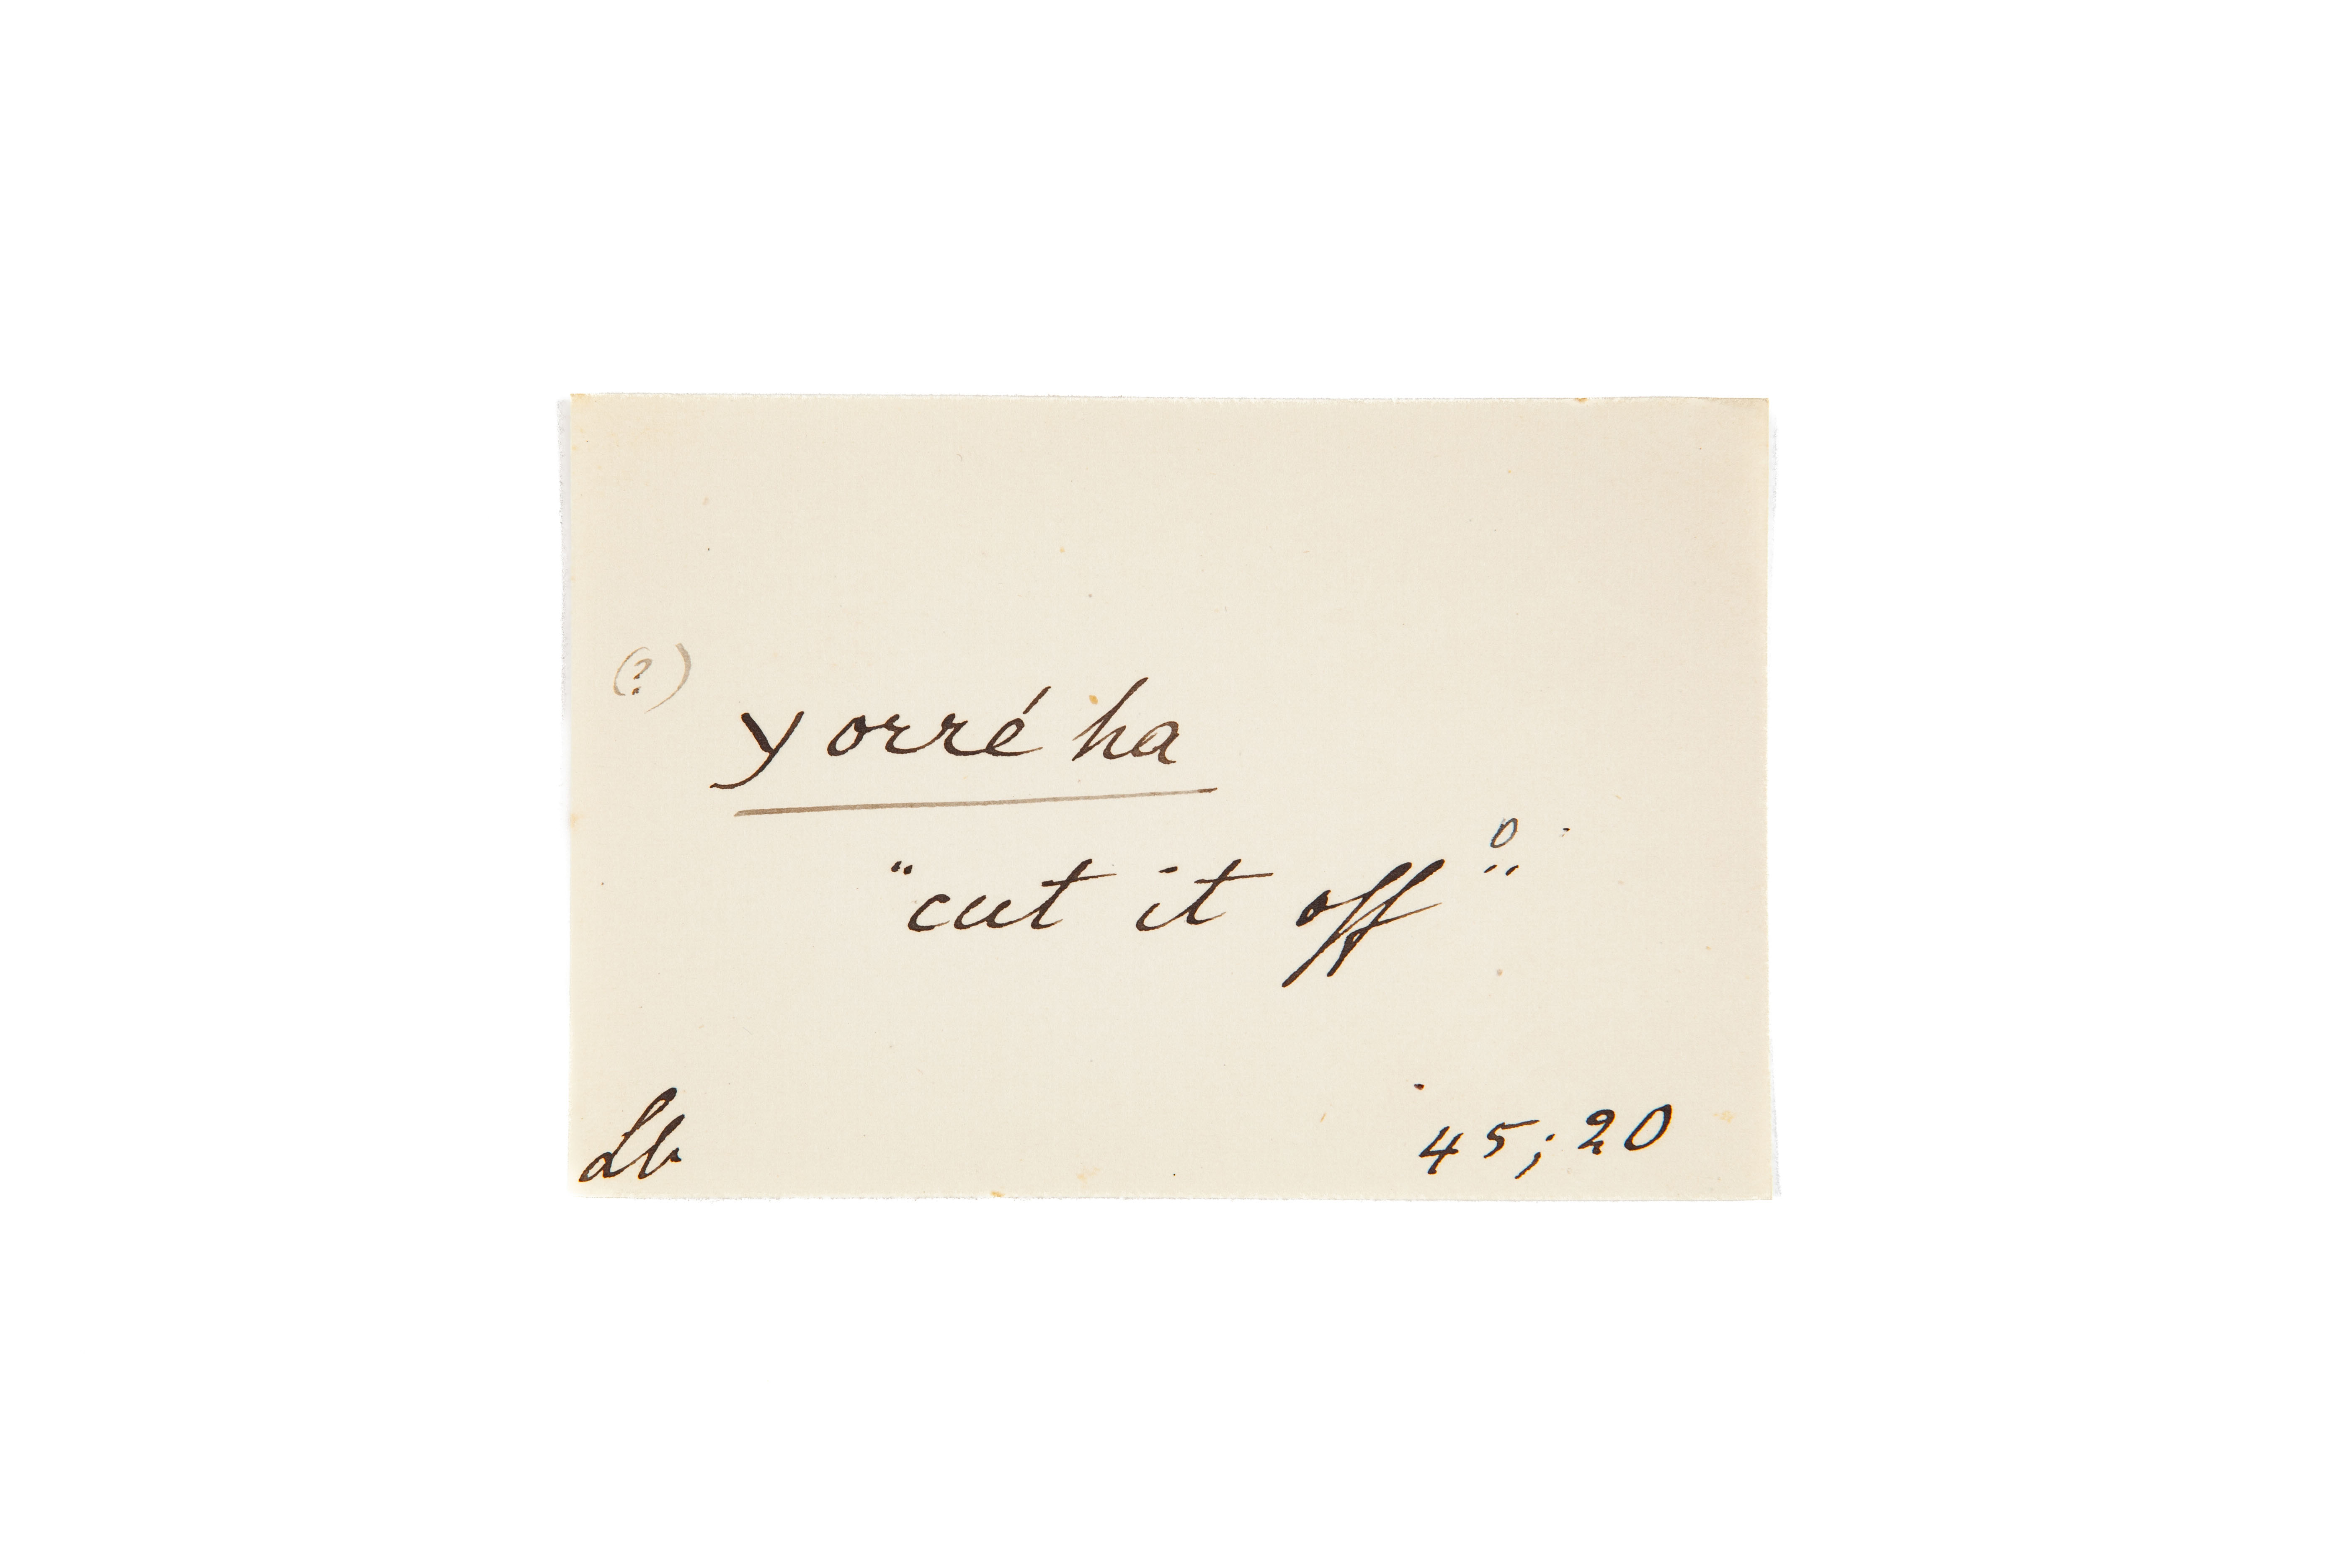 (?)
yorré ha
"cut it off" o
Lb 45; 20